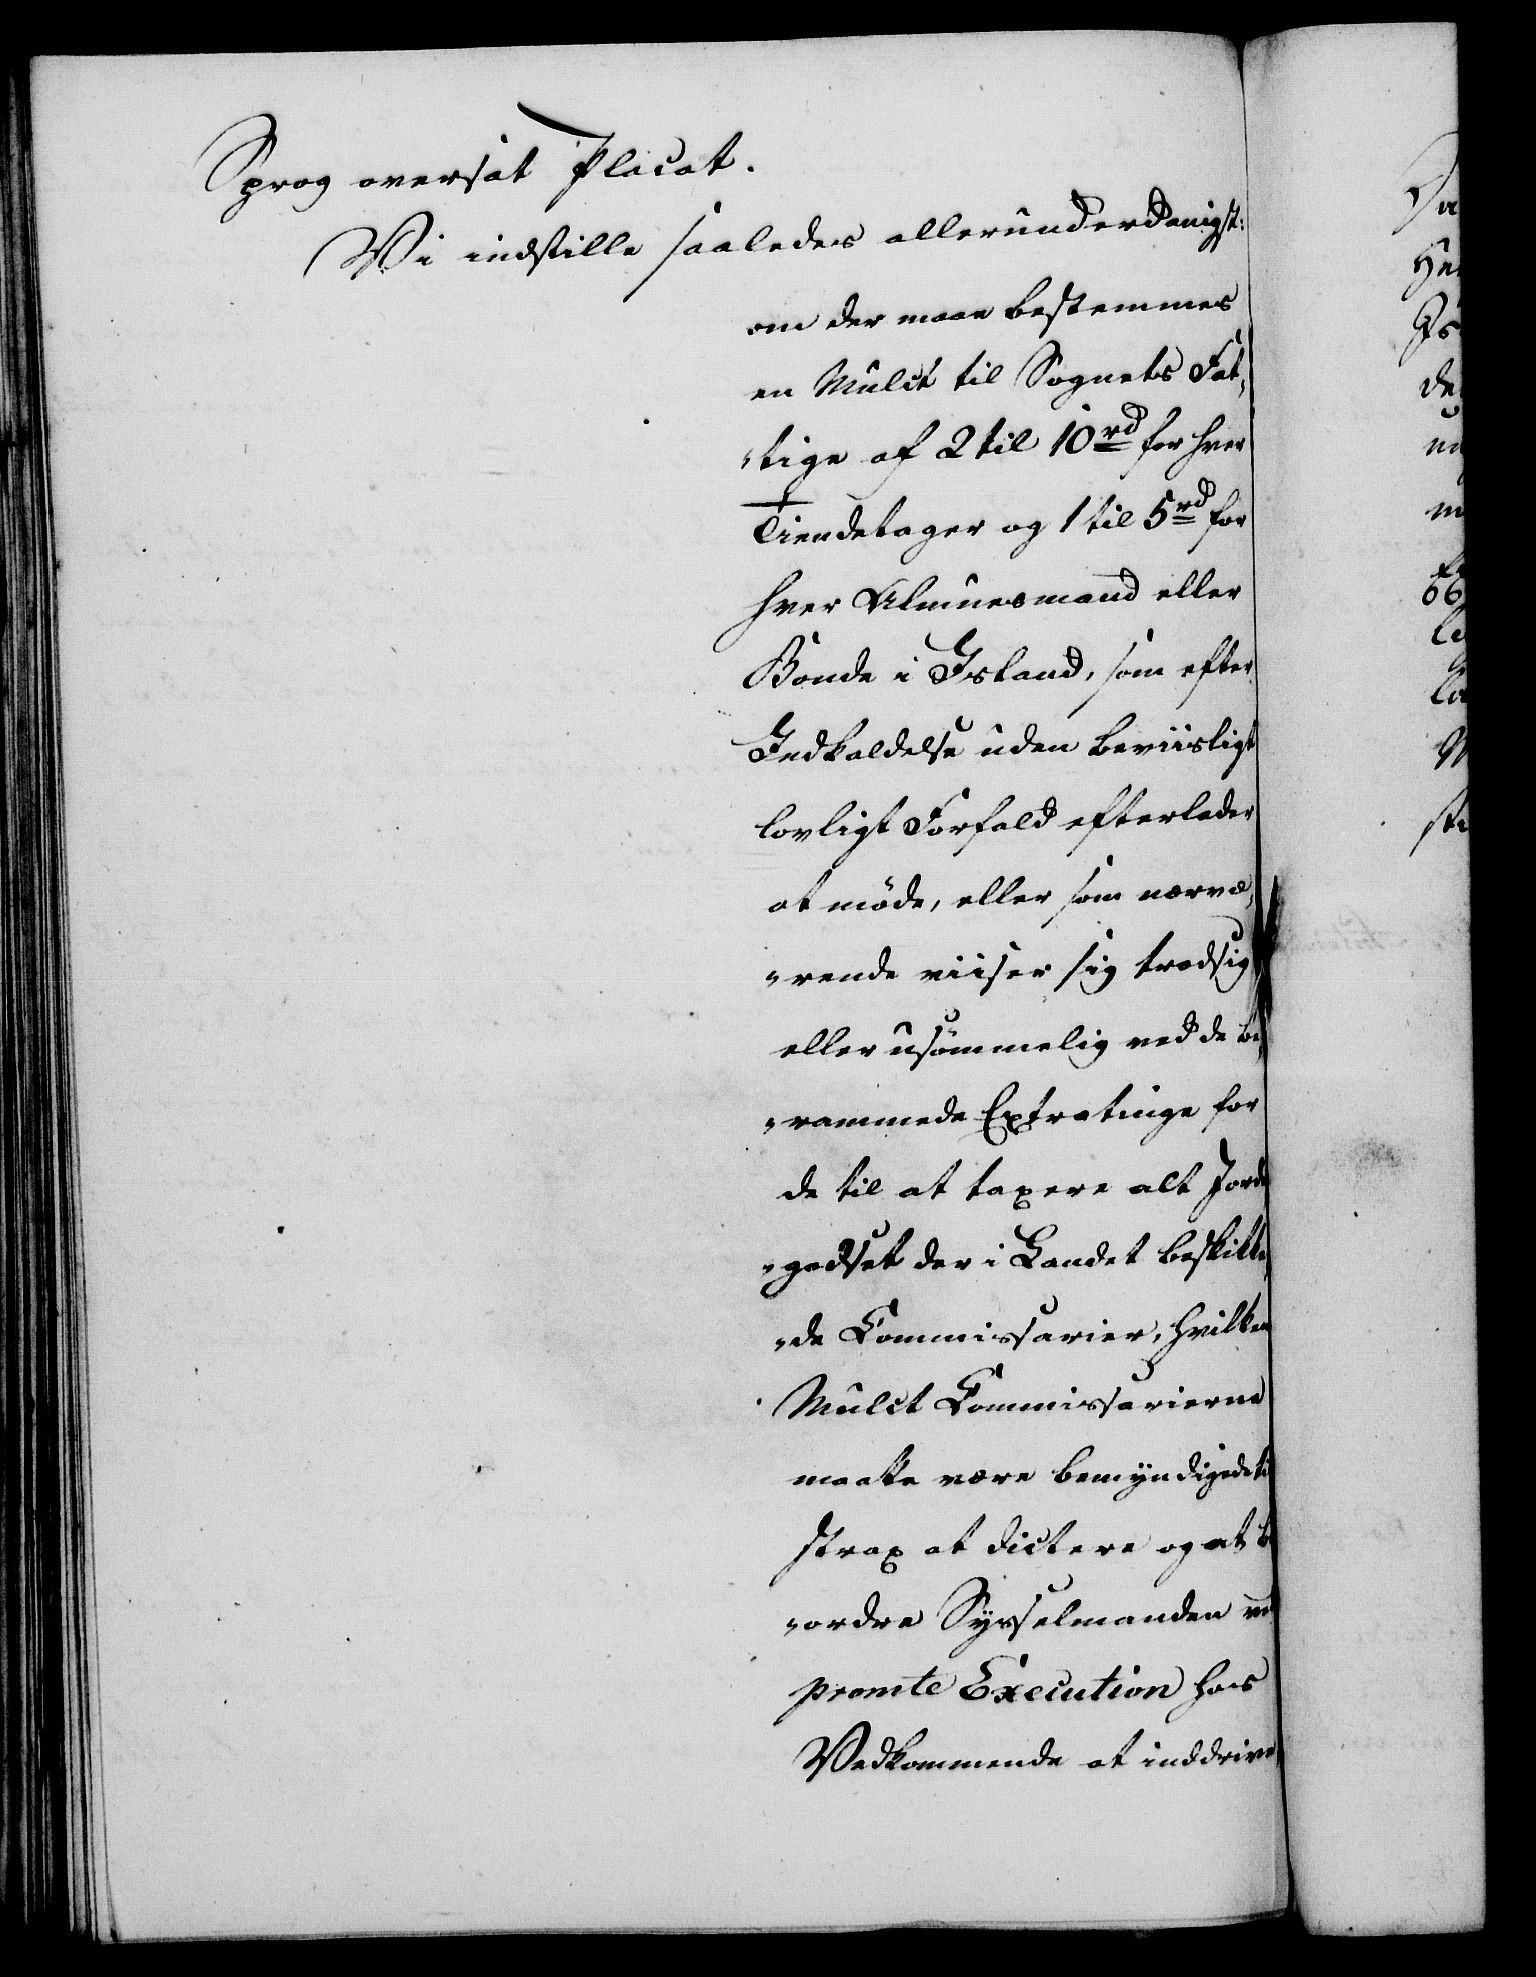 Sprog oversat Placat.
Vi indstille saaledes allerunderdanigst:
om der maae bestemmes
en Mulct til Sognets Fat„
„tige af 2 til 10 rd for hver
Tiendetager og 1 til 5 rd for
hver Almuesmand eller
Bonde i Island, som efter
Indkaldelse uden beviisligt
lovligt Forfald efterlader
at møde, eller som nærvæ„
„rende viiser sig trodsig
eller usømmelig ved de be„
„rammede Extratinge for
de til at taxere alt Jorde
„godset der i Landet beskikke„
„de Commissarier, hvilken
Mulct Commissarierne
maatte være bemyndigede til
strax at dictere og at b
„ordre Sysselmanden ved
promte Execution hos
Vedkommende at inddrive